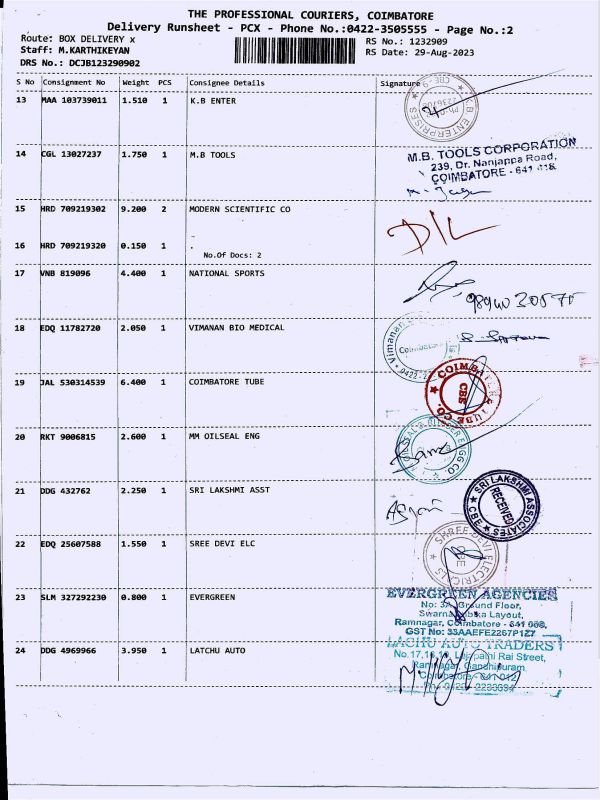 THE PROFESSIONAL COURIERS, COIMBATORE
Delivery Runsheet - PCX - Phone No.:0422-3505555 - Page No.:2
Route: BOX DELIVERY x
RS No.: 1232909
Staff: M.KARTHIKEYAN
RS Date: 29-Aug-2023
DRS No.: DCJB123290902
S No Consignment No Weight PCS Consignee Details Signature
13 MAA 103739011 1.510 1 K.B ENTER
K.B ENTERPRISES
14 CGL 13027237 1.750 1 M.B TOOLS
M.B. TOOLS CORPORATION
239, Dr. Nanjappa Road,
COIMBATORE - 641 018.
15 HRD 709219302 9.200 2 MODERN SCIENTIFIC CO
D/L
16 HRD 709219320 0.150 1 .
No.Of Docs: 2
17 VNB 819096 4.400 1 NATIONAL SPORTS
18 EDQ 11782720 2.050 1 VIMANAN BIO MEDICAL
Vimanan
19 JAL 530314539 6.400 1 COIMBATORE TUBE
COIMBATORE TUBE CO.
CBE
20 RKT 9006815 2.600 1 MM OILSEAL ENG
21 DDG 432762 2.250 1 SRI LAKSHMI ASST
SRI LAKSHMI ASSOCIATES
RECEIVED
CBE
22 EDQ 25607588 1.550 1 SREE DEVI ELC
SHREE DEVI ELECTRICALS
23 SLM 327292230 0.800 1 EVERGREEN
EVERGREEN AGENCIES
No: 3A, Ground Floor,
Layout,
Ramnagar, Coimbatore - 641 009.
GST No: 33AAEFE2267P1Z7
24 DDG 4969966 3.950 1 LATCHU AUTO
LACHU AUTO TRADERS
Rai Street,
Ramnagar, Gandhipuram,
Coimbatore - 641 012